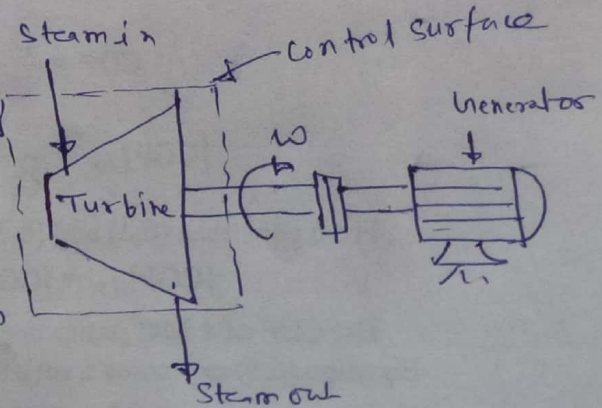 Steam in
Control Surface
Generator
W
Turbine
Steam out